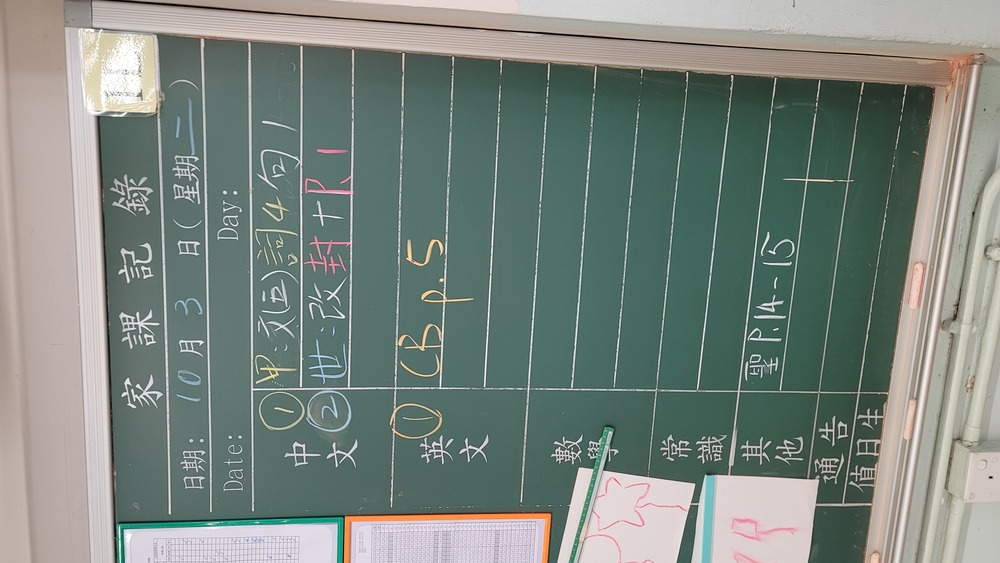 家課記錄
日期: 10 月 3 日 (星期二)
Date: Day:
中文 ① 甲:文(五)詞4句1
② 世:改封+P.1
英文 ① CB p.5
數學
常識
其他 聖 P.14-15
通告 一
值日生